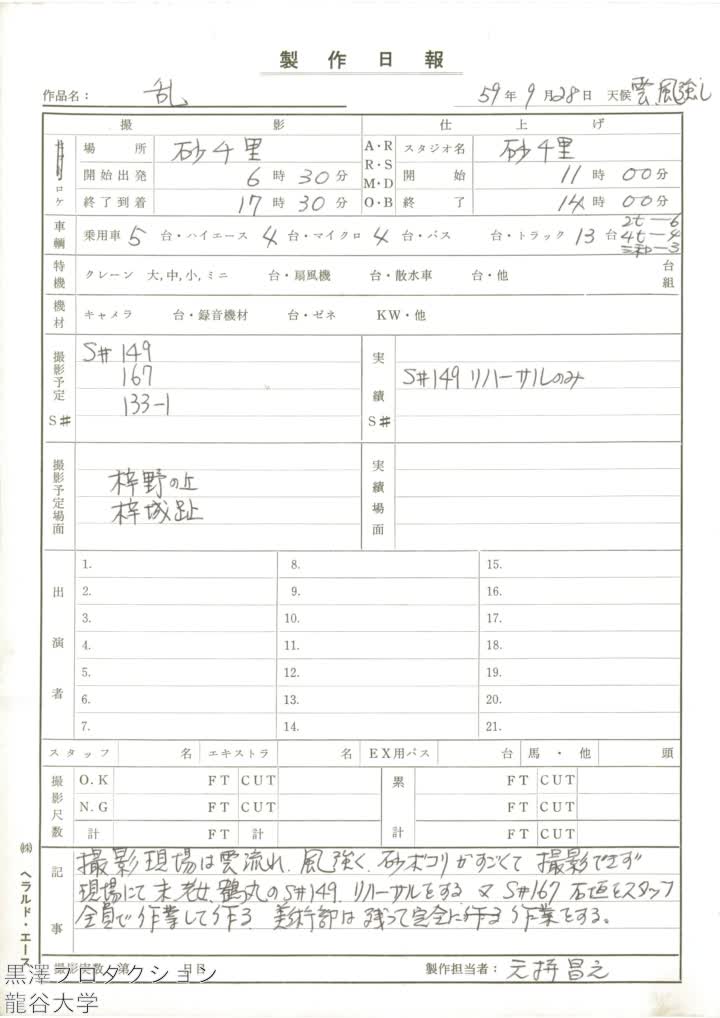 製作日報
作品名： 乱 59年 9月28日 天候 雲風強し
撮影 仕上げ
ロケ 場所 砂千里 A・R R・S M・D O・B スタジオ名 砂千里
開始出発 6時30分 開始 11時00分
終了到着 17時30分 終了 14時00分
車輌 乗用車 5 台・ハイエース 4 台・マイクロ 4 台・バス 台・トラック 13 台 2t－6 4t－4 三和－3
特機 クレーン 大,中,小,ミニ 台・扇風機 台・散水車 台・他 台組
機材 キャメラ 台・録音機材 台・ゼネ KW・他
撮影予定 S# S# 149 実績 S#
167 S#149 リハーサルのみ
133-1
撮影予定場面 梓野の丘 実績場面
梓城趾
出演者 1. 8. 15.
2. 9. 16.
3. 10. 17.
4. 11. 18.
5. 12. 19.
6. 13. 20.
7. 14. 21.
スタッフ 名 エキストラ 名 EX用バス 台 馬・他 頭
撮影尺数 O.K FT CUT 累計 FT CUT
N.G FT CUT FT CUT
計 FT 計 FT CUT
記事 撮影現場は雲流れ、風強く、砂ボコリがすごくて 撮影できず
現場にて 末、老女、鶴丸のS#149、リハーサルをする 又 S#167 石垣をスタッフ
全員で作業して作る 美術部は残って完全に作る作業をする。
撮影実数 第 日目 製作担当者：元持昌之
㈱ ヘラルド・エース
黒澤プロダクション
龍谷大学